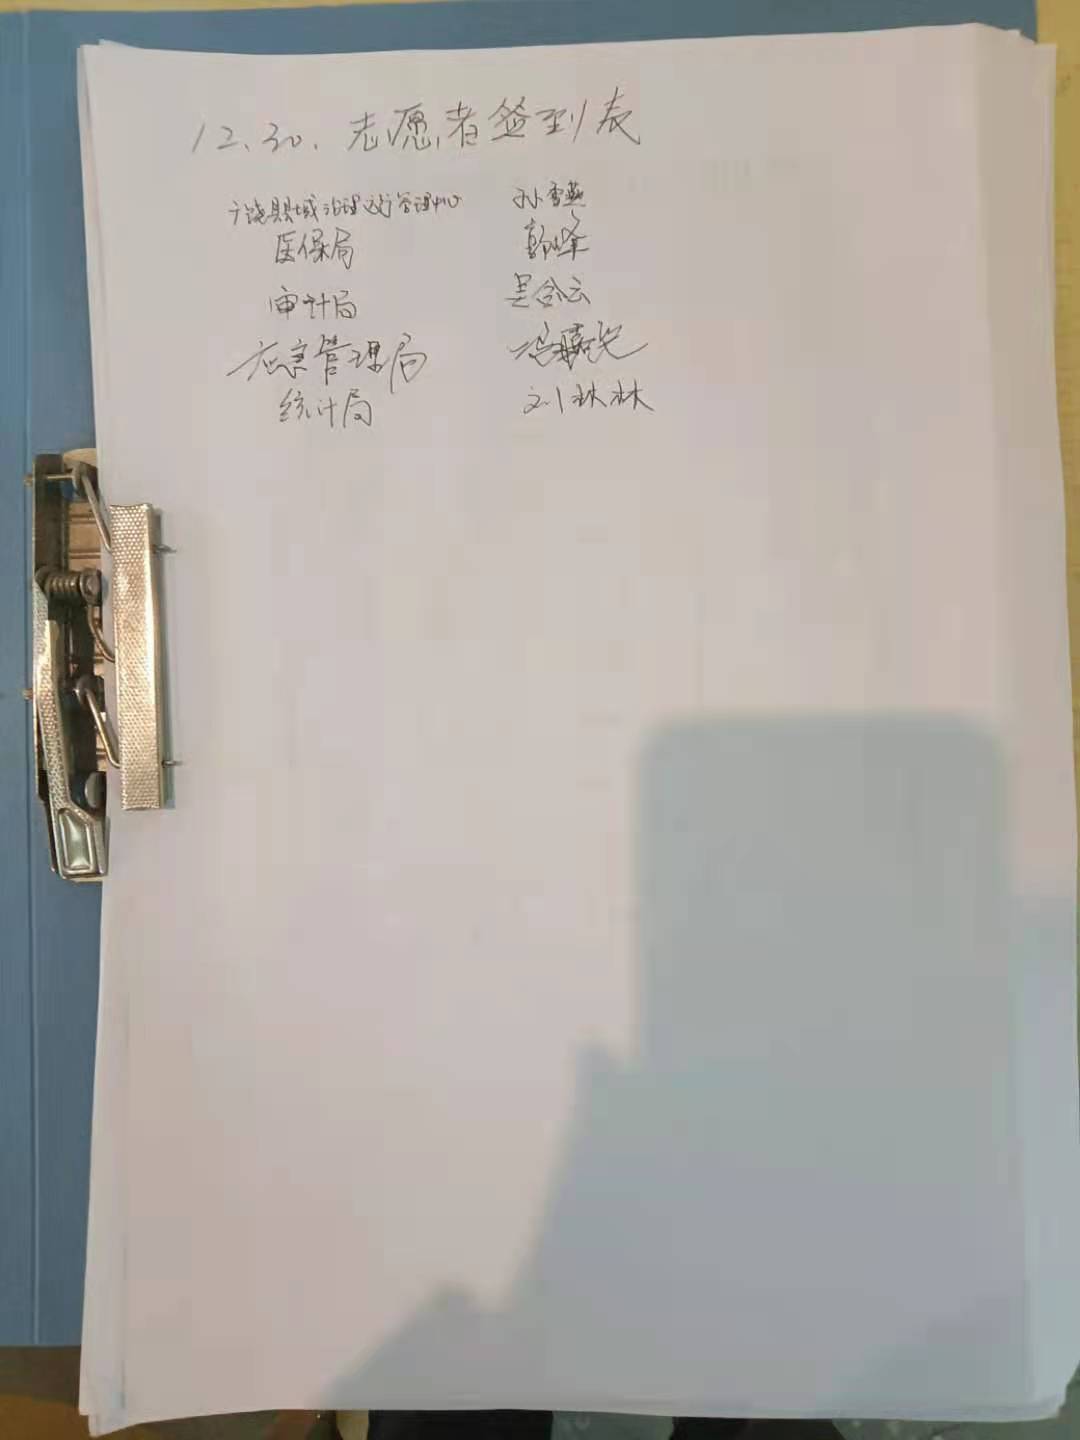 12.30.志愿者签到表
广饶县县域治理运行管理中心 孙雪燕
医保局 韩峰
审计局 吴会云
应急管理局 冯
统计局 刘林林